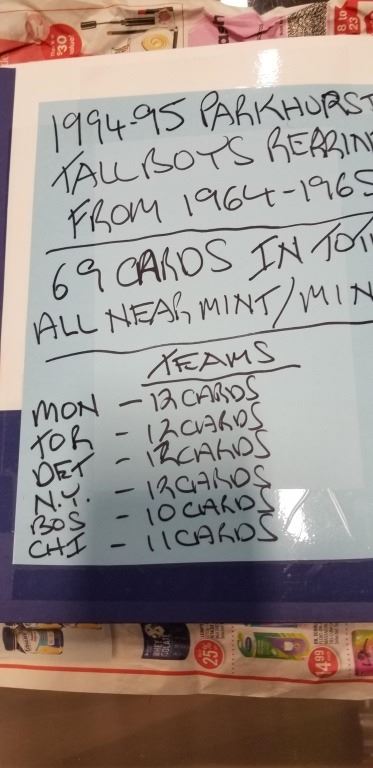 1994-95 PARKHURST
TALLBOYS REPRIN
FROM 1964-1965
69 CARDS IN TOT
ALL NEAR MINT/MIN
TEAMS
MON - 12 CARDS
TOR - 12 CARDS
DET - 12 CARDS
N.Y. - 12 CARDS
BOS - 10 CARDS
CHI - 11 CARDS
$30
8 to
23
25%
14.99